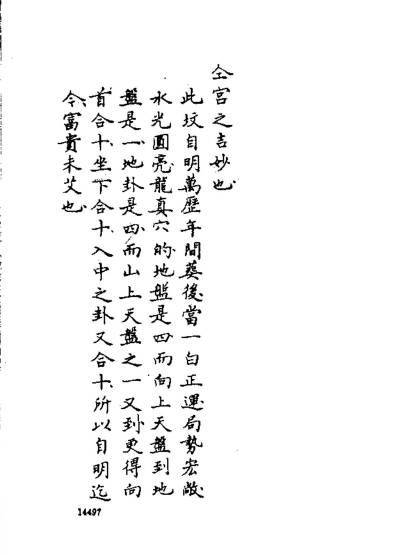 仝宮之吉妙也
此坟自明萬歷年間葵後當一白正運局勢宏敞
水光圓亮龍真穴的地盤是四而向上天盤到地
盤是一地卦是四而山上天盤之一又到更得向
首合十坐下合十入中之卦又合十所以自明迄
今富貴未艾也
14497